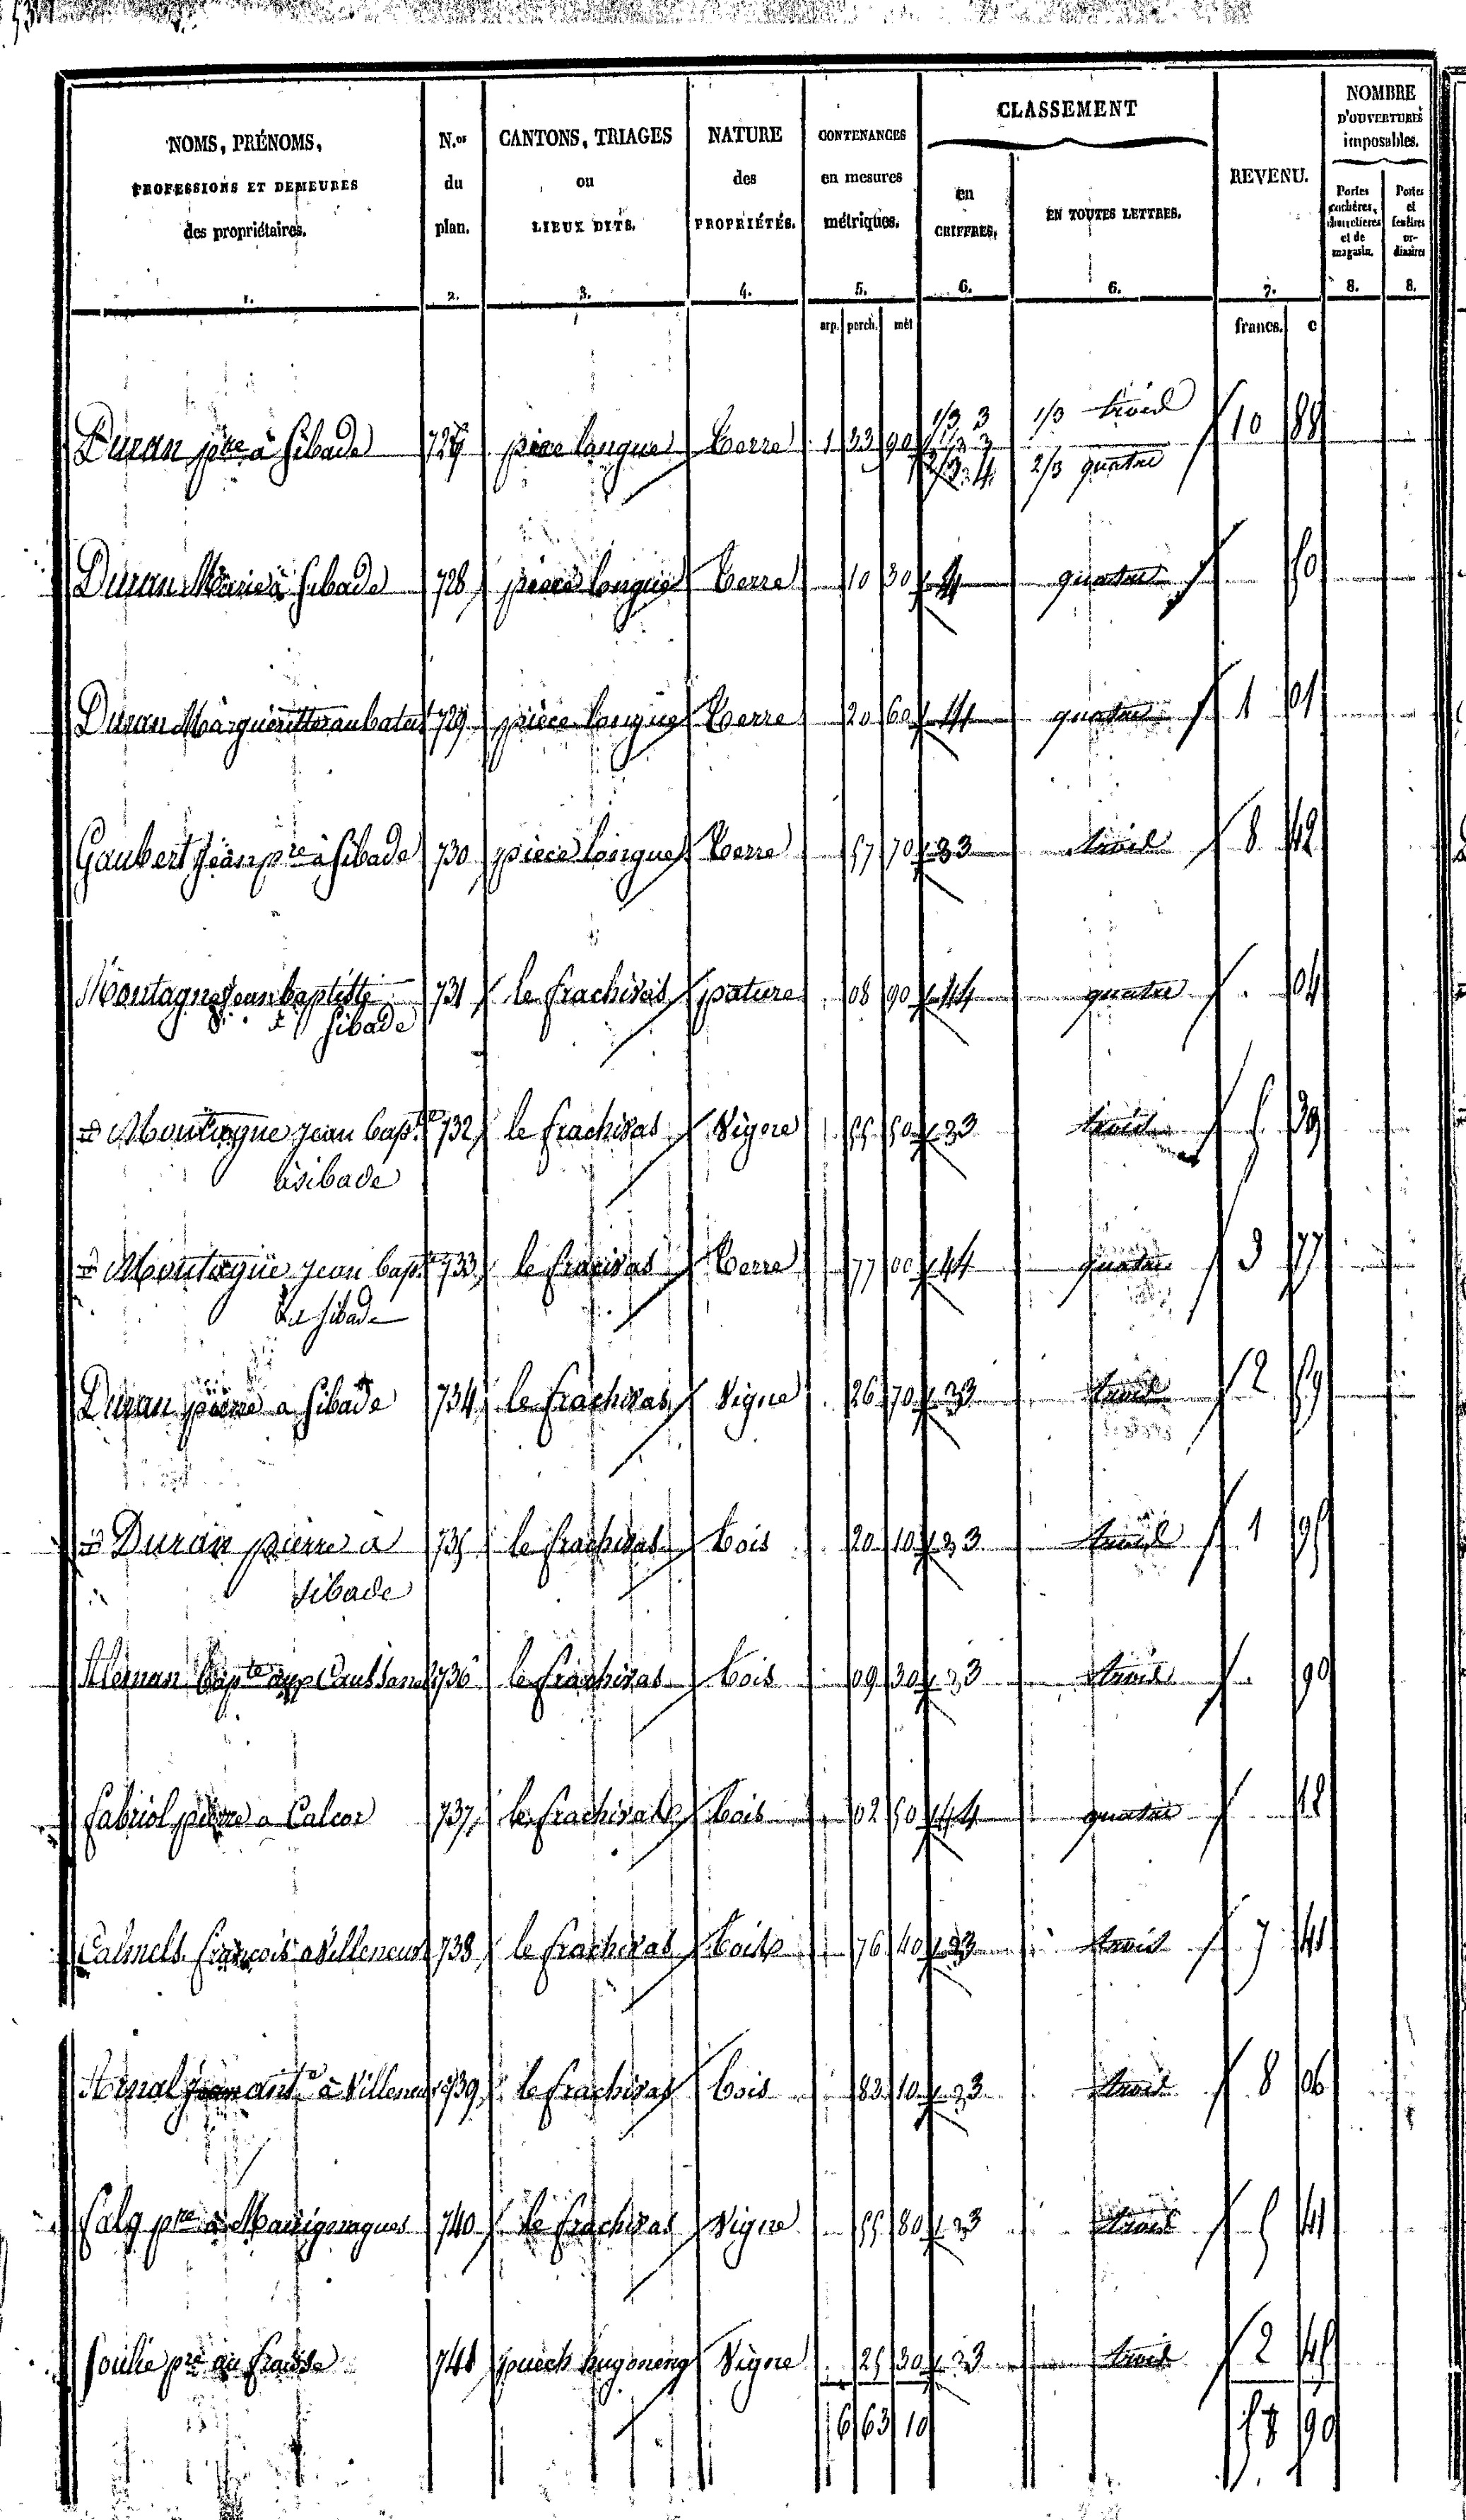 NOMS, PRÉNOMS, PROFESSIONS ET DEMEURES des propriétaires. 1.
N.os du plan. 2.
CANTONS, TRIAGES ou LIEUX DITS. 3.
NATURE des PROPRIÉTÉS. 4.
CONTENANCES en mesures métriques. 5.
CLASSEMENT
en CHIFFRES. 6.
EN TOUTES LETTRES. 6.
REVENU. 7.
NOMBRE D'OUVERTURES imposables.
Portes cochères, charretières et de magasin. 8.
Portes et fenêtres ordinaires 8.
arp. perch. mèt francs. c
Duran pre à Sibade 727 pièce longue terre 1 33 90 1/3 3 2/3 4 1/3 trois 2/3 quatre 10 88
Duran Marie à Sibade 728 pièce longue terre 10 30 4 quatre 50
Duran Margueritte aubatut 729 pièce longue terre 20 60 4 quatre 1 01
Gaubert Jean pre à Sibade 730 pièce longue terre 57 70 3 trois 8 42
Montagne Jean baptiste 731 le frachivas pature 08 90 4 quatre 04
Sibade
Montagne jean bapte 732 le frachivas Vigne 55 50 3 trois 5 39
à sibade
Montagne jean bapte 733 le fracivas terre 77 00 4 quatre 3 77
Sibade
Duran pierre a Sibade 734 le frachivas Vigne 26 70 3 trois 2 59
Duran pierre a 735 le frachivas bois 20 10 3 trois 1 95
Sibade
Aleman bapte Caussanel 736 le frachivas bois 09 30 3 trois 90
fabriol pierre a Calcor 737 le frachivas bois 02 50 4 quatre 12
Calmels françois a Villeneuve 738 le frachivas bois 76 40 3 trois 7 41
Arnal jean ante à Villeneuve 739 le frachivas bois 83 10 3 trois 8 06
Calq pre à Marignagues 740 le frachivas Vigne 55 80 3 trois 5 41
Soulie pre au fraisse 741 puech hugoneng Vigne 25 30 3 trois 2 45
6 63 10 58 90